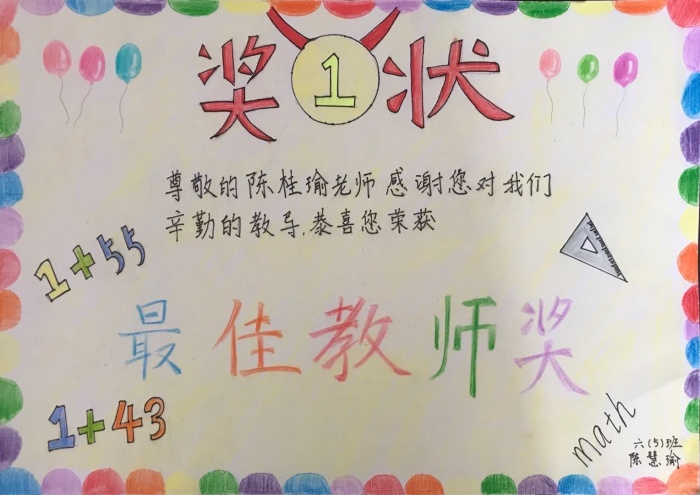 奖 1 状
尊敬的陈桂瑜老师感谢您对我们
辛勤的教导,恭喜您荣获
1+55
最佳教师奖
1+43
math
六(5)班
陈慧瑜